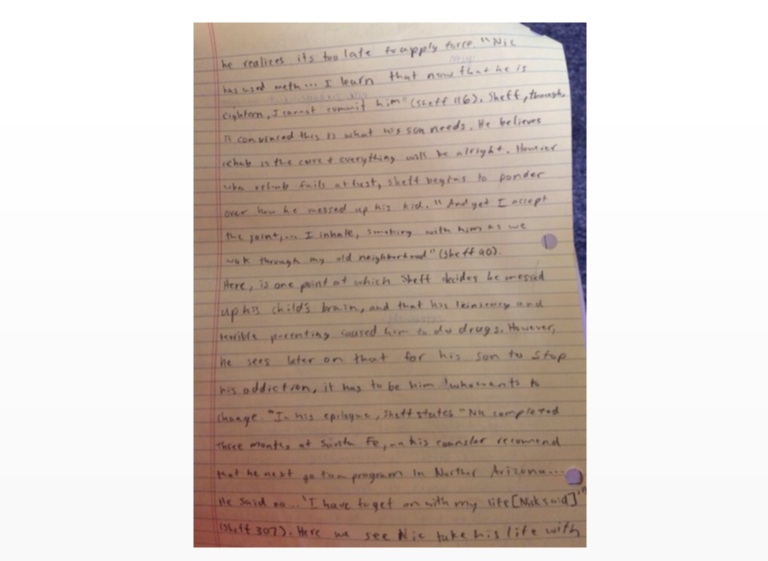 he realizes its too late to apply force. "Nic
has used meth... I learn that now that he is
eighteen, I cannot commit him" (Sheff 116). Sheff, though,
is convinced this is what his son needs. He believes
rehab is the cure + everything will be alright. However
rehab fails at first, Sheff begins to ponder
over how he messed up his kid. "And yet I accept
the joint,... I inhale, smoking with him as we
walk through my old neighborhood" (Sheff 90).
Here, is one point at which Sheff decides he messed
up his child's brain, and that his leinency and
terrible parenting caused him to do drugs. However,
he sees later on that for his son to stop
his addiction, it has to be him who wants to
change. "In his epilogue, Sheff states "Nic completed
three months at Santa Fe, his counslor recomend
that he next go to a program in Norther Arizona...
He said no... 'I have to get on with my life [Nick said]'"
(Sheff 307). Here we see Nic take his life with